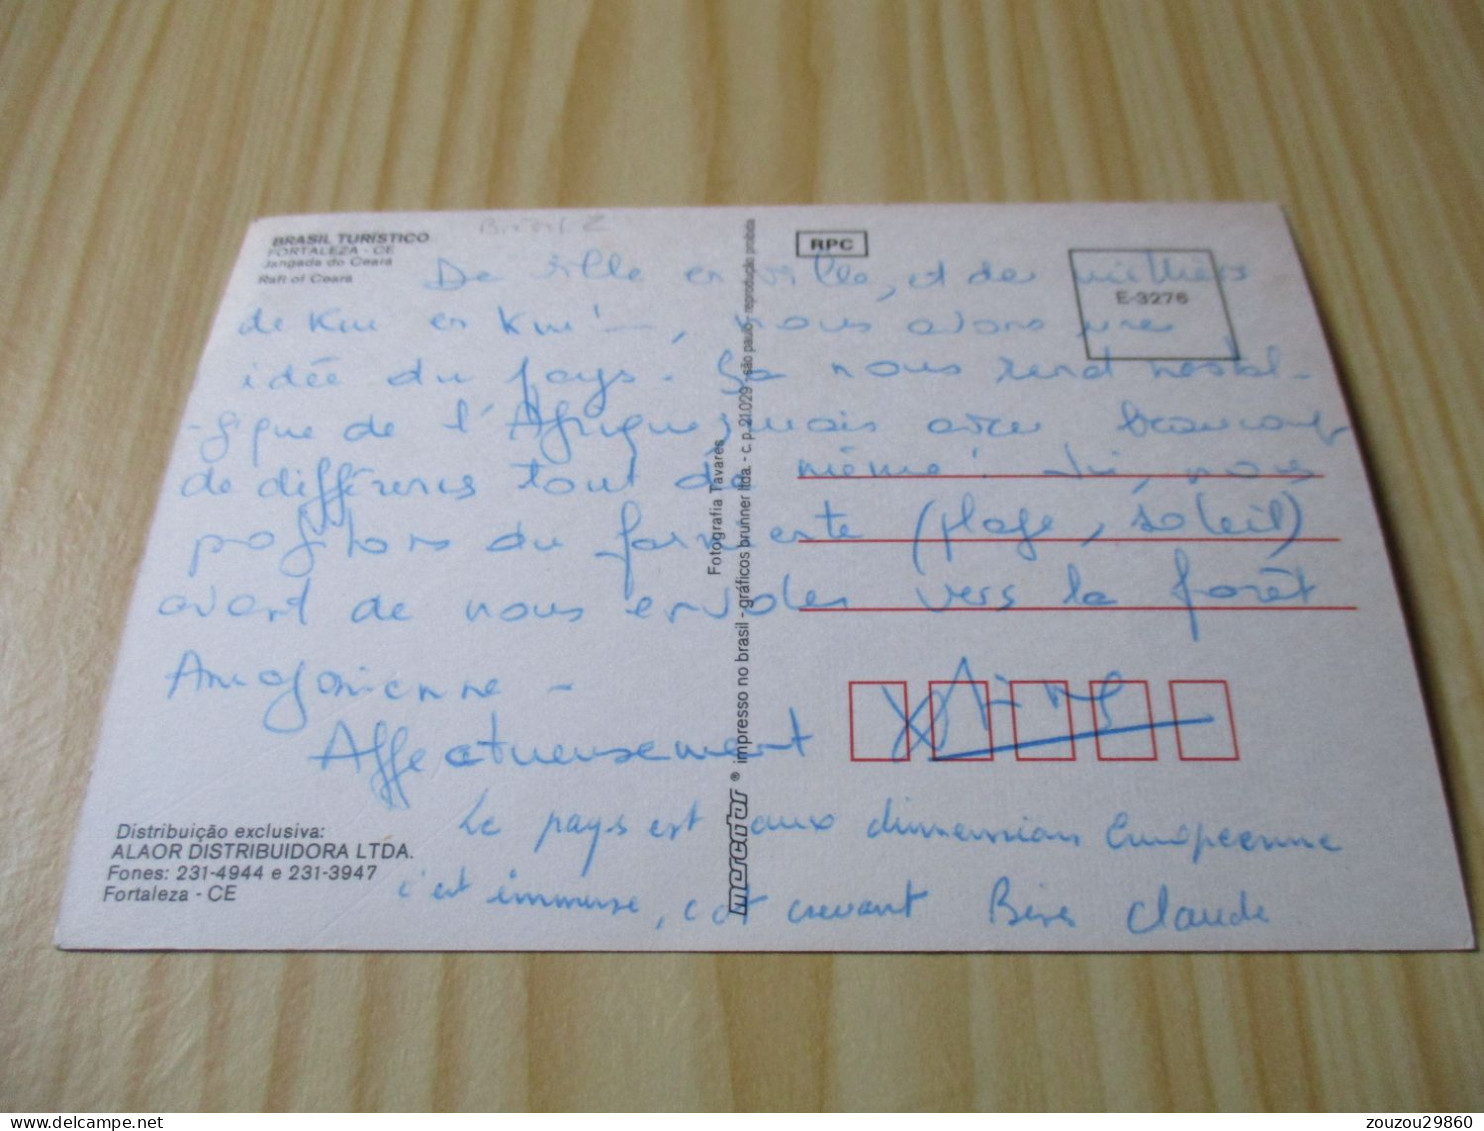 BRASIL TURÍSTICO
FORTALEZA - CE
Jangada do Ceará
Raft of Ceara
RPC
E-3276
De ville en ville, et de milliers
de Km en Km!, nous avons une
idée du pays. Ça nous rend nostal-
-gique de l'Afrique, mais avec beaucoup
de différences tout de même! Ici, nous
profitons du farniente (plage, soleil)
avant de nous envoler vers la forêt
Amazonienne -
Affectueusement
Le pays est aux dimensions Européenne
c'est immense, c'est crevant Bises Claude
Distribuição exclusiva:
ALAOR DISTRIBUIDORA LTDA.
Fones: 231-4944 e 231-3947
Fortaleza - CE
Fotografia Tavares
mercator ® impresso no brasil - gráficos brunner ltda. - c.p. 21.029 - são paulo - reprodução proibida
zouzou29860